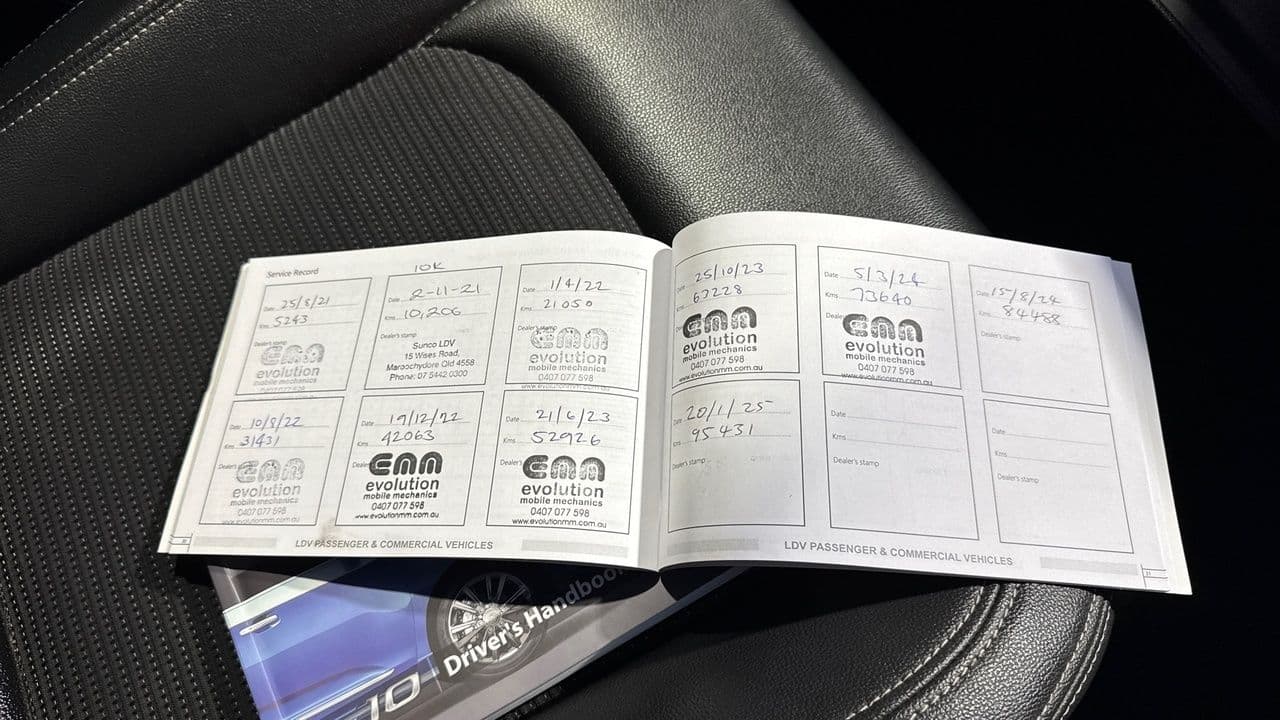 Service Record
Date 25/8/21
Kms 5243
Dealer's stamp
emm
evolution
mobile mechanics
0407 077 598
10K
Date 2-11-21
Kms 10,206
Dealer's stamp
Sunco LDV
15 Wises Road,
Maroochydore Qld 4558
Phone: 07 5442 0300
Date 1/4/22
Kms 21050
Dealer's stamp
emm
evolution
mobile mechanics
0407 077 598
www.evolutionmm.com.au
Date 10/8/22
Kms 31431
Dealer's
emm
evolution
mobile mechanics
0407 077 598
www.evolutionmm.com.au
Date 19/12/22
Kms 42063
Dealer's
emm
evolution
mobile mechanics
0407 077 598
www.evolutionmm.com.au
Date 21/6/23
Kms 52926
Dealer's
emm
evolution
mobile mechanics
0407 077 598
www.evolutionmm.com.au
LDV PASSENGER & COMMERCIAL VEHICLES
Date 25/10/23
Kms 63228
emm
evolution
mobile mechanics
0407 077 598
www.evolutionmm.com.au
Date 5/3/24
Kms 73640
Dealer
emm
evolution
mobile mechanics
0407 077 598
www.evolutionmm.com.au
Date 15/8/24
Kms 84488
Dealer's stamp
Date 20/1/25
Kms 95431
Dealer's stamp
Date
Kms
Dealer's stamp
Date
Kms
Dealer's stamp
LDV PASSENGER & COMMERCIAL VEHICLES
Driver's Handboo
10